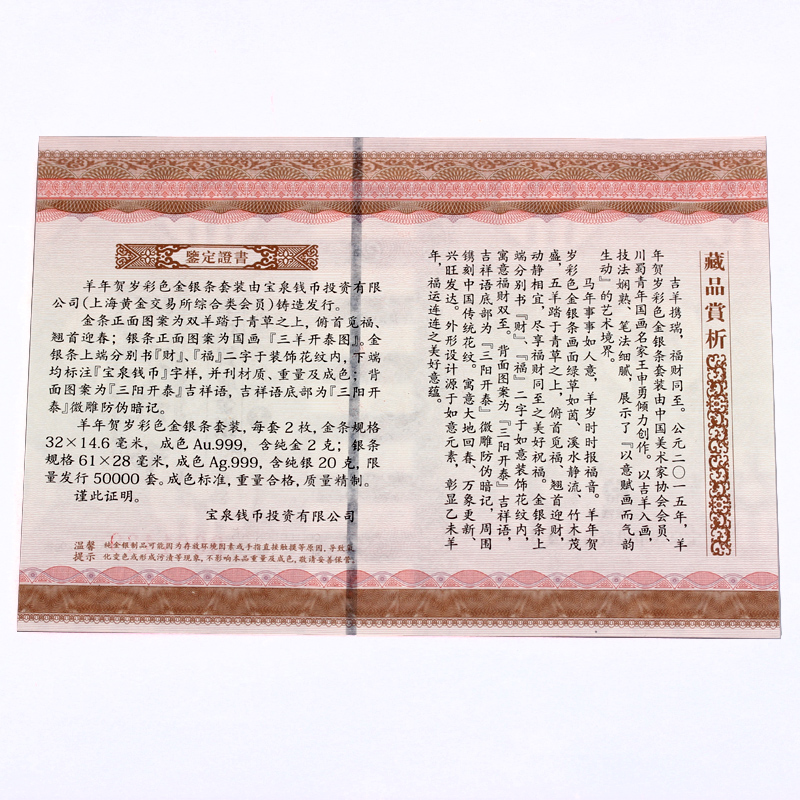 鑒定證書
羊年贺岁彩色金银条套装由宝泉钱币投资有限
公司(上海黄金交易所综合类会员)铸造发行。
金条正面图案为双羊踏于青草之上,俯首觅福、
翘首迎春;银条正面图案为国画『三羊开泰图』。金
银条上端分别书『财』、『福』二字于装饰花纹内,下端
均标注『宝泉钱币』字样,并刊材质、重量及成色;背
面图案为『三阳开泰』吉祥语,吉祥语底部为『三阳开
泰』微雕防伪暗记。
羊年贺岁彩色金银条套装,每套2枚,金条规格
32×14.6毫米,成色Au.999,含纯金2克;银条
规格61×28毫米,成色Ag.999,含纯银20克,限
量发行50000套。成色标准,重量合格,质量精制。
谨此证明。
宝泉钱币投资有限公司
温馨
提示
纯金银制品可能因为存放环境因素或手指直接触摸等原因,导致氧
化变色或形成污渍等现象,不影响本品重量及成色,敬请妥善保管。
藏品賞析
吉羊携瑞,福财同至。公元二〇一五年,羊
年贺岁彩色金银条套装由中国美术家协会会员、
川蜀青年国画名家王申勇倾力创作。以吉羊入画,
技法娴熟、笔法细腻,展示了『以意赋画而气韵
生动』的艺术境界。
马年事事如人意,羊岁时时报福音。羊年贺
岁彩色金银条画面绿草如茵、溪水静流、竹木茂
盛,五羊踏于青草之上,俯首觅福、翘首迎财,
动静相宜,尽享福财同至之美好祝福。金银条上
端分别书『财』、『福』二字于如意装饰花纹内,
寓意福财双至。背面图案为『三阳开泰』吉祥语,
吉祥语底部为『三阳开泰』微雕防伪暗记,周围
镌刻中国传统花纹。寓意大地回春、万象更新、
兴旺发达。外形设计源于如意元素,彰显乙未羊
年,福运连连之美好意蕴。